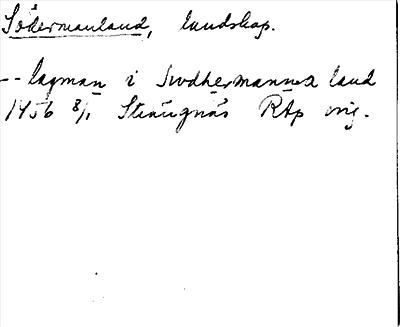 Södermanland, landskap.
-- lagman i Swdhermanna land
1456 8/1 Strängnäs RAp orig.